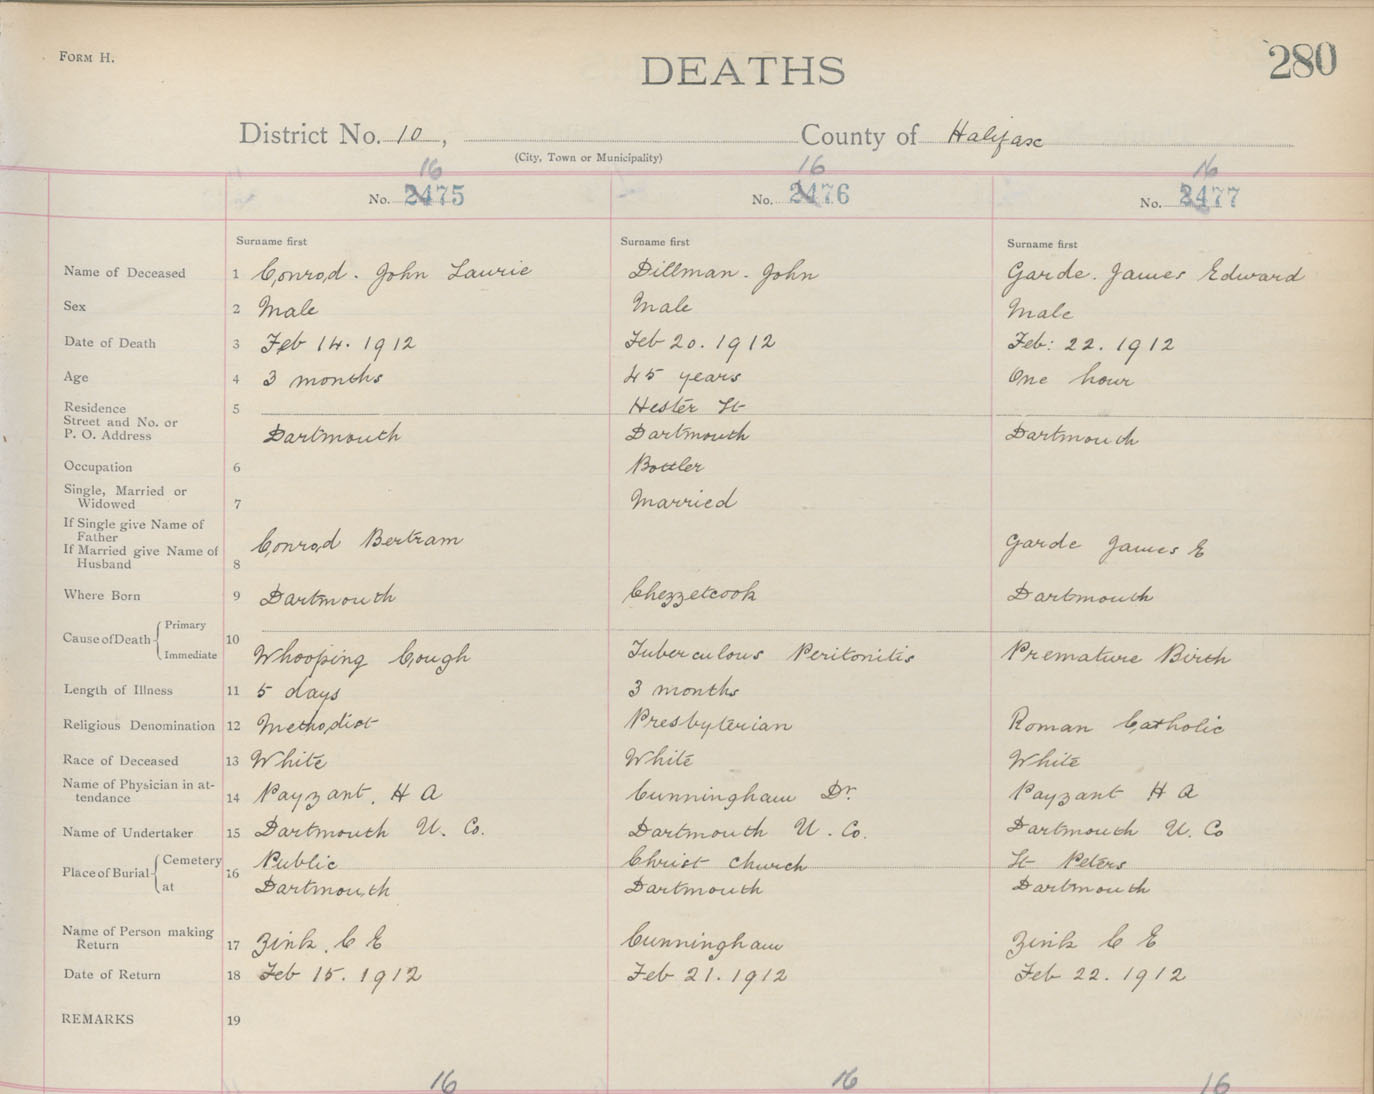 FORM H.
DEATHS
280
District No. 10, County of Halifax
(City, Town or Municipality)
16 16 16
No. 2475 No. 2476 No. 2477
Surname first Surname first Surname first
Name of Deceased 1 Conrod. John Laurie Dillman. John Garde. James Edward
Sex 2 Male Male Male
Date of Death 3 Feb 14. 1912 Feb 20. 1912 Feb: 22. 1912
Age 4 3 months 45 years One hour
Residence 5 Hester St
Street and No. or
P. O. Address Dartmouth Dartmouth Dartmouth
Occupation 6 Bottler
Single, Married or
Widowed 7 Married
If Single give Name of
Father
If Married give Name of
Husband 8 Conrod Bertram Garde James E
Where Born 9 Dartmouth Chezzetcook Dartmouth
Cause of Death Primary 10
Immediate Whooping Cough Tuberculous Peritonitis Premature Birth
Length of Illness 11 5 days 3 months
Religious Denomination 12 Methodist Presbyterian Roman Catholic
Race of Deceased 13 White White White
Name of Physician in at-
tendance 14 Payzant. H A Cunningham Dr. Payzant H A
Name of Undertaker 15 Dartmouth U. Co. Dartmouth U. Co. Dartmouth U. Co
Place of Burial Cemetery 16 Public Christ Church St Peters
at Dartmouth Dartmouth Dartmouth
Name of Person making
Return 17 Zink. C E Cunningham Zink C E
Date of Return 18 Feb 15. 1912 Feb 21. 1912 Feb 22. 1912
REMARKS 19
16 16 16